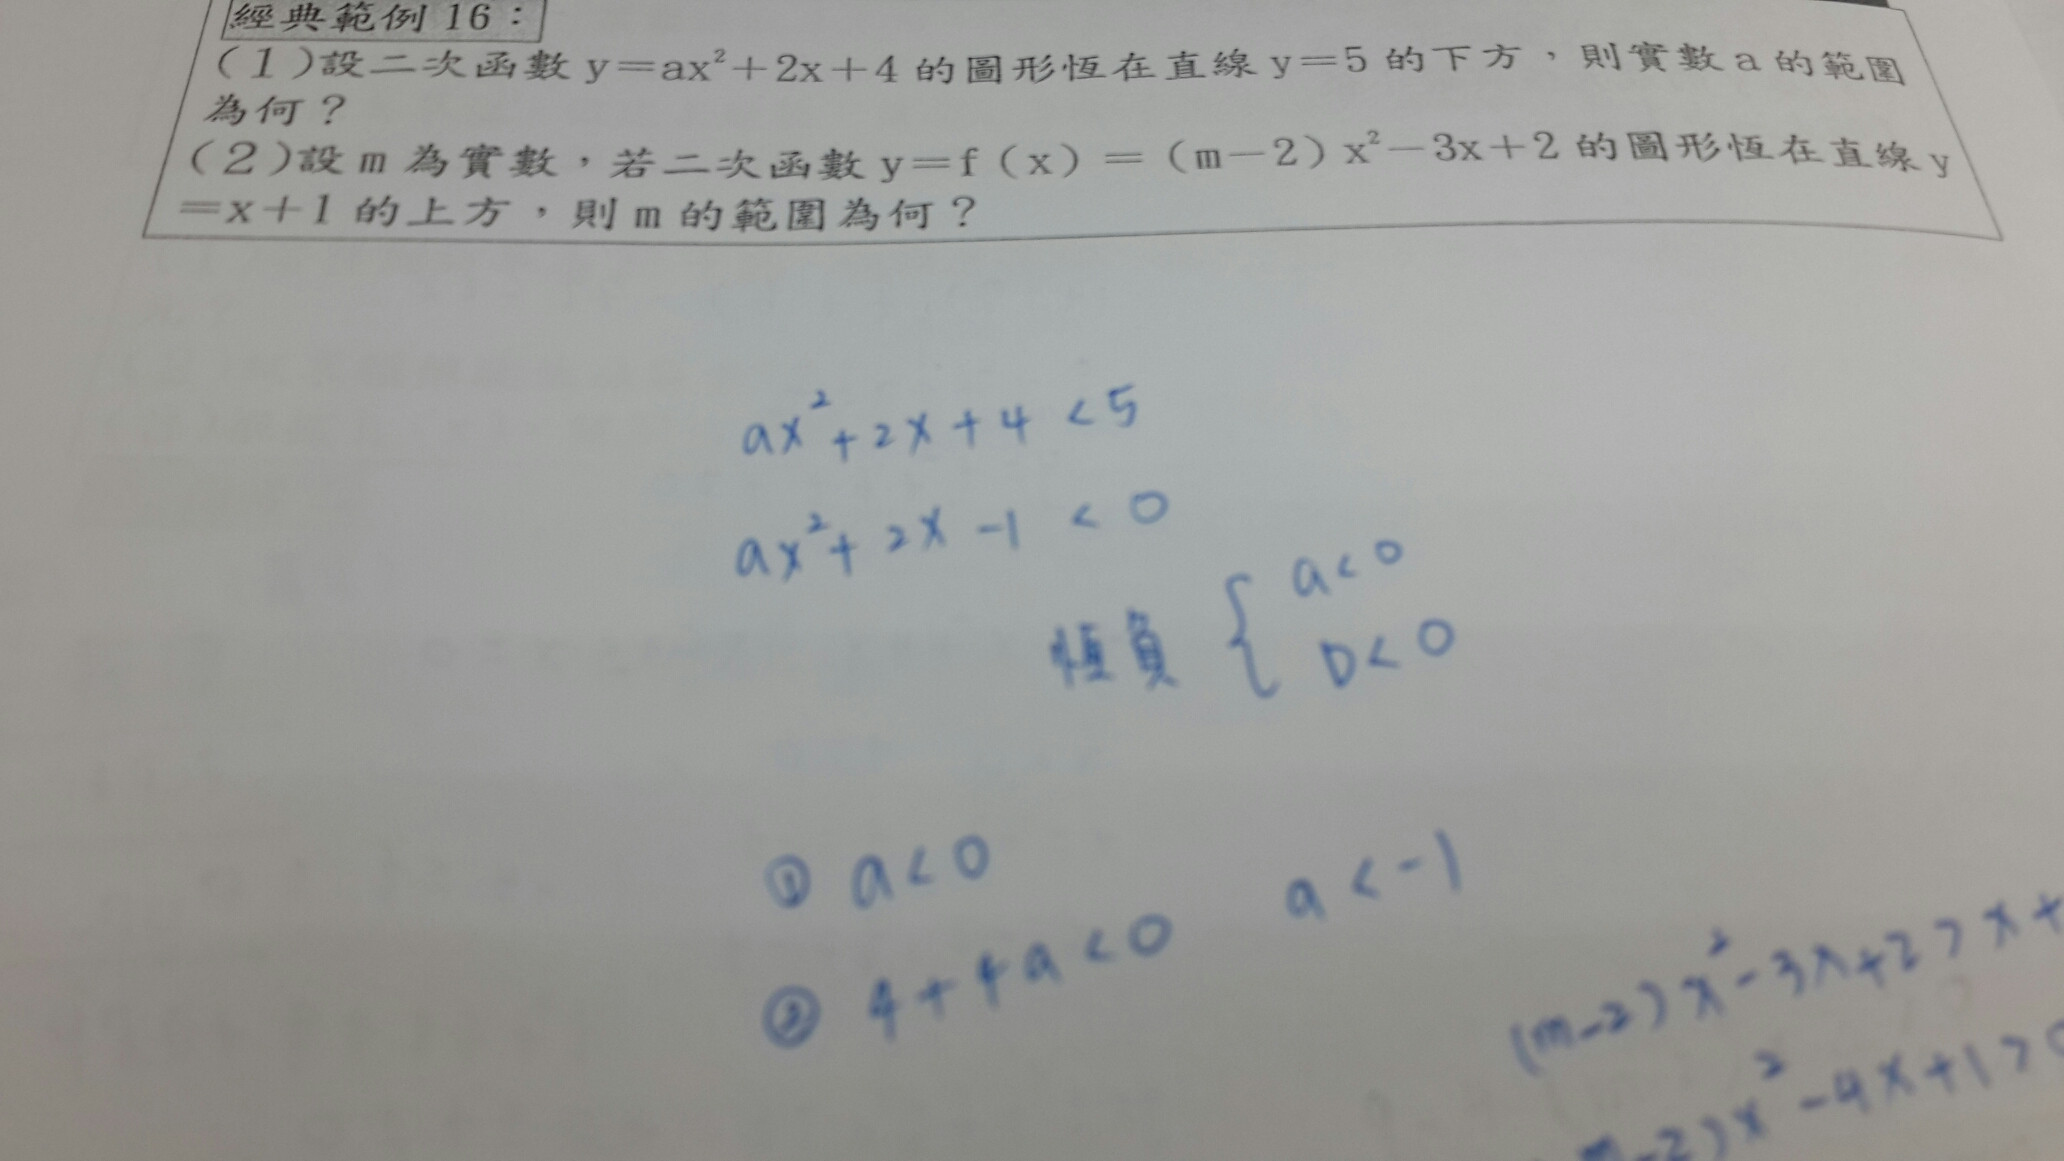 經典範例16：
(1)設二次函數y=ax²+2x+4的圖形恆在直線y=5的下方，則實數a的範圍
為何？
(2)設m為實數，若二次函數y=f(x)=(m-2)x²-3x+2的圖形恆在直線y
=x+1的上方，則m的範圍為何？
ax²+2x+4<5
ax²+2x-1<0
恆負 { a<0
D<0
① a<0
a<-1
② 4+4a<0
(m-2)x²-3x+2>x+
m-2)x²-4x+1>0